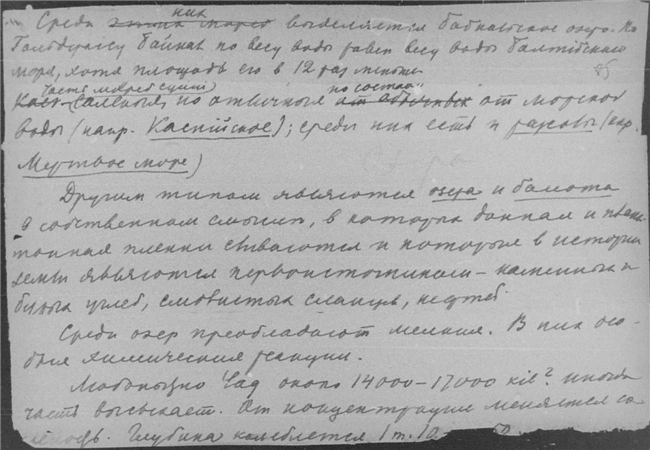 них
Среди этих морей выделяется байкальское озеро. По
Гольдшмидту Байкал по весу воды равен весу воды балтийского
моря, хотя площадь его в 12 раз меньше.
часть морей суши по составу
соленые, но отличные от морской
воды (напр. Каспийское); среди них есть и (напр.
Мертвое море)
Другим типом являются озера и болота
в собственном смысле, в которых донная и планк-
тонная пленки сливаются и которые в истории
земли являются первоисточником – каменных и
бурых углей, сланцев, нефтей.
Среди озер преобладают мелкие. В них осо-
бые химические реакции.
Любопытно Чад около 14000–17000 kil² иногда
часть высыхает. От концентрации меняется со-
леность. Глубина колеблется